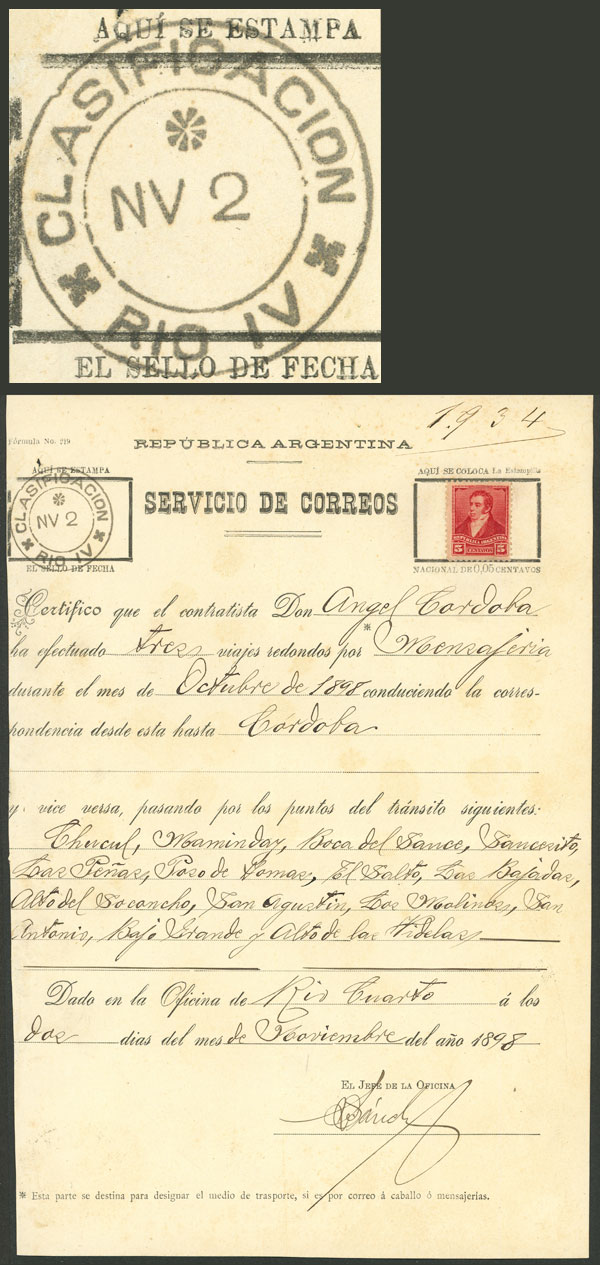 AQUÍ SE ESTAMPA
CLASIFICACION
NV 2
RIO IV
EL SELLO DE FECHA
1934
Fórmula No. 219
REPÚBLICA ARGENTINA
AQUÍ SE ESTAMPA
CLASIFICACION
NV 2
RIO IV
EL SELLO DE FECHA
SERVICIO DE CORREOS
AQUÍ SE COLOCA La Estampilla
REPUBLICA ARGENTINA
5 CENTAVOS 5
NACIONAL DE 0,05 CENTAVOS
Certifico que el contratista Don Angel Cordoba
ha efectuado tres viajes redondos por * Mensajeria
durante el mes de Octubre de 1898 conduciendo la corres-
pondencia desde esta hasta Cordoba
y vice versa, pasando por los puntos del tránsito siguientes:
Chucul, Boca del Sauce, Saucesito,
Las Peñas, Poso de Lomas, El Salto, Las Bajadas,
Alto del Soconcho, San Agustin, Los Molinos, San
Antonio, Bajo Grande y Alto de las Videlas
Dado en la Oficina de Rio Cuarto á los
dos dias del mes de Noviembre del año 1898
EL JEFE DE LA OFICINA
* Esta parte se destina para designar el medio de trasporte, si es por correo á caballo ó mensajerias.